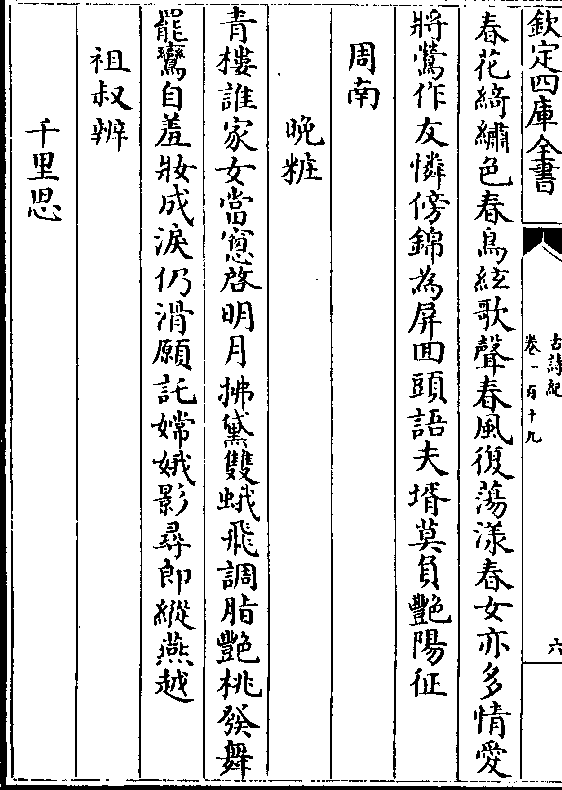 欽定四庫全書
古詩紀
卷一百十九
六
春花綺繡色春鳥絃歌聲春風復蕩漾春女亦多情愛
將鶯作友憐傍錦為屏回頭語夫壻莫負艷陽征
周南
晩粧
青樓誰家女當窻啓明月拂黛雙蛾飛調脂艷桃發舞
罷鸞自羞妝成淚仍滑願託嫦娥影尋郎縱燕越
祖叔辨
千里思